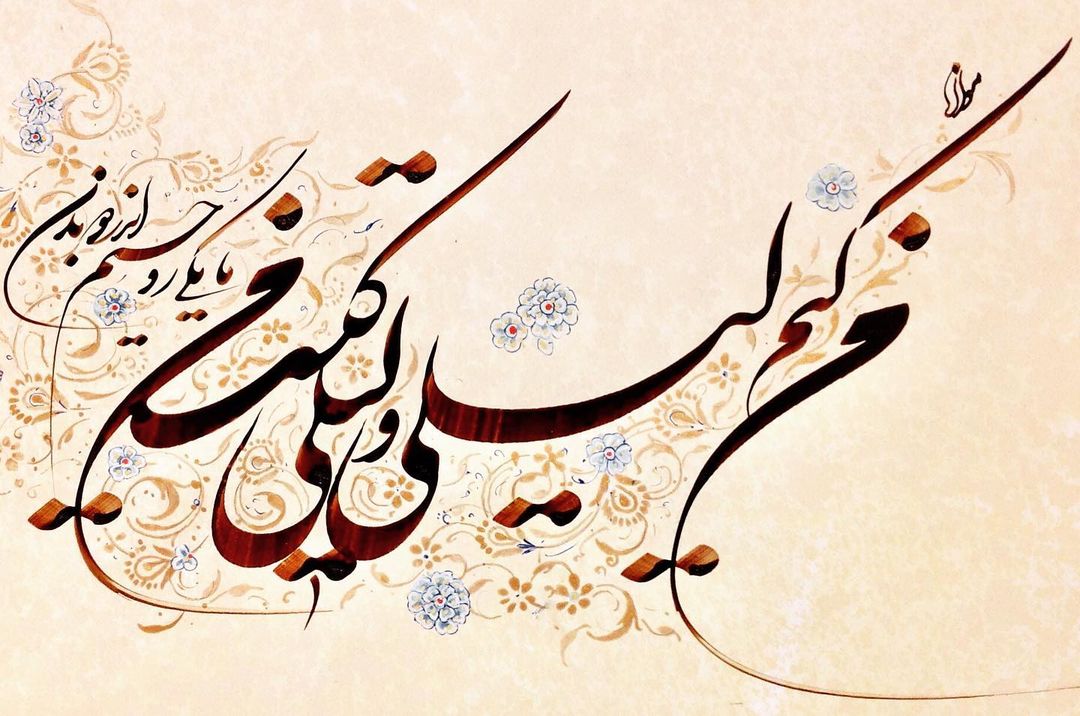 مولانا
من کیم لیلی و لیلی کیست من
ما یکی روحیم اندر دو بدن